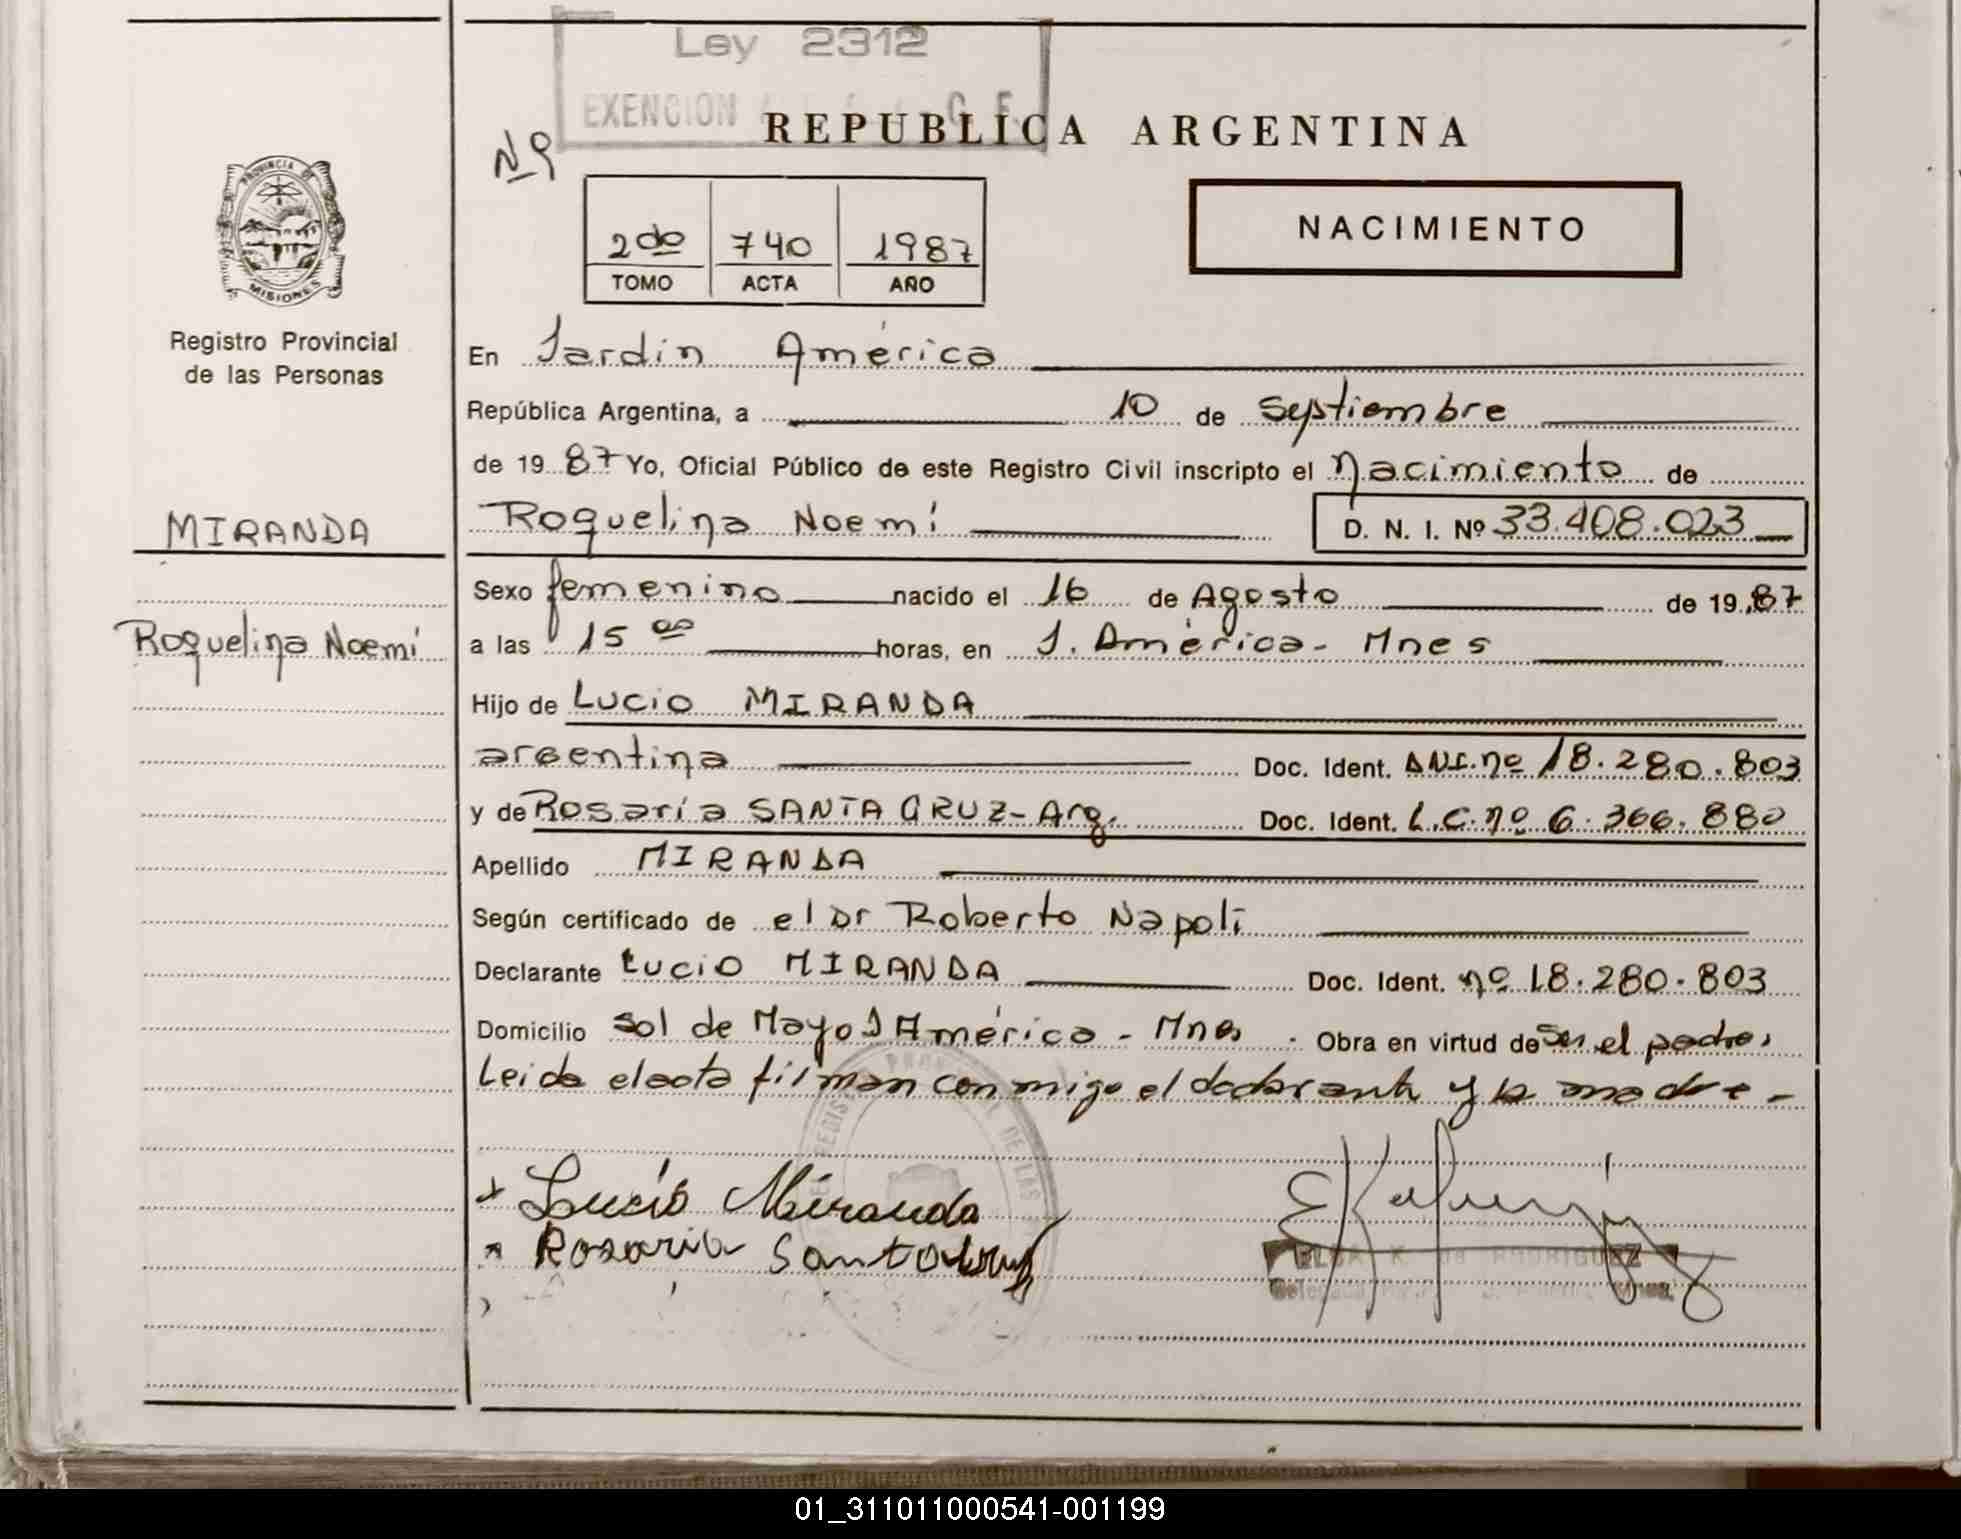 Ley 2312
EXENCION
REPUBLICA ARGENTINA
Nº
NACIMIENTO
2do 740 1987
TOMO ACTA AÑO
PROVINCIA DE
MISIONES
Registro Provincial
de las Personas
En Jardin América
República Argentina, a 10 de Septiembre
de 19 87 Yo, Oficial Público de este Registro Civil inscripto el Nacimiento de
MIRANDA
Roquelina Noemí D. N. I. Nº 33.408.023
Sexo femenino nacido el 16 de Agosto de 19 87
Roquelina Noemí
a las 15 00 horas, en J. América - Mnes
Hijo de Lucio MIRANDA
argentina Doc. Ident. DNI. nº 18.280.803
y de Rosaria SANTA CRUZ - Arg. Doc. Ident. L.C. nº 6.366.880
Apellido MIRANDA
Según certificado de el Dr Roberto Napoli
Declarante Lucio MIRANDA Doc. Ident. nº 18.280.803
Domicilio Sol de Mayo J América - Mnes. Obra en virtud de ser el padre,
Leida el acta firman conmigo el declarante y la madre -
Lucio Miranda
Rosaria Santa Cruz
ELSA K. DE RODRIGUEZ
01_311011000541-001199